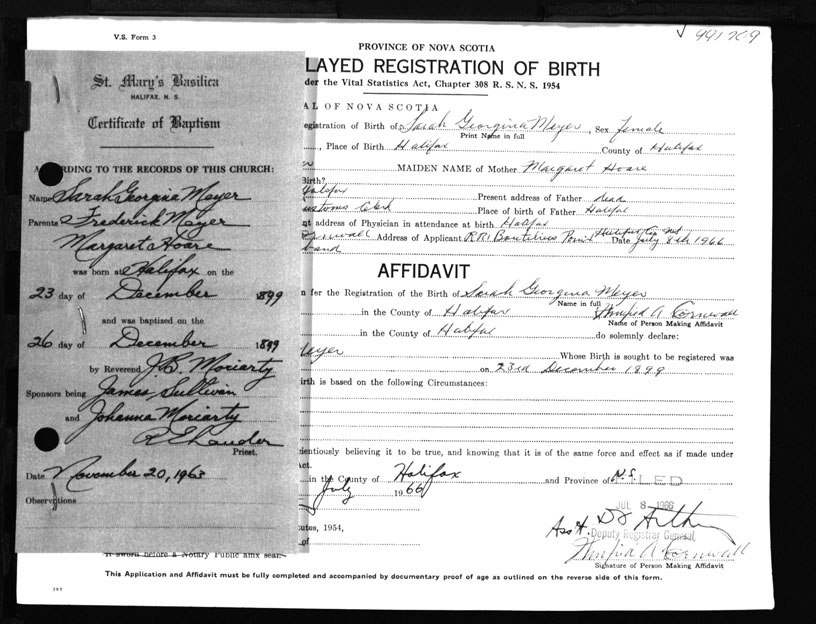 V.S. Form 3
991709
PROVINCE OF NOVA SCOTIA
LAYED REGISTRATION OF BIRTH
der the Vital Statistics Act, Chapter 308 R. S. N. S. 1954
AL OF NOVA SCOTIA
egistration of Birth of Sarah Georgina Meyer, Sex female
Print Name in full
, Place of Birth Halifax County of Halifax
MAIDEN NAME of Mother Margaret Hoare
Birth?
Halifax Present address of Father dead
ustoms Clerk Place of birth of Father Halifax
nt address of Physician in attendance at birth Halifax
Cornwall Address of Applicant R.R.1 Boutiliers Point Halifax Co. Date July 8th 1966
band
AFFIDAVIT
n for the Registration of the Birth of Sarah Georgina Meyer
Name in full
in the County of Halifax A Cornwall
Name of Person Making Affidavit
in the County of Halifax do solemnly declare:
Meyer Whose Birth is sought to be registered was
on 23rd December 1899
irth is based on the following Circumstances:
ientiously believing it to be true, and knowing that it is of the same force and effect as if made under
Act.
in the County of Halifax and Province of N.S.
LED
July 1966
JUL 8 - 1966
utes, 1954,
of
Ass't.
Deputy Registrar General
A Cornwall
Signature of Person Making Affidavit
If sworn before a Notary Public affix seal
This Application and Affidavit must be fully completed and accompanied by documentary proof of age as outlined on the reverse side of this form.
St. Mary's Basilica
HALIFAX, N. S.
Certificate of Baptism
ACCORDING TO THE RECORDS OF THIS CHURCH:
Name Sarah Georgina Meyer
Parents Frederick Meyer
Margaret Hoare
was born at Halifax on the
23 day of December 1899
and was baptized on the
26 day of December 1899
by Reverend J.B. Moriarty
Sponsors being James Sullivan
and Johanna Moriarty
Priest.
Date November 20, 1963
Observations